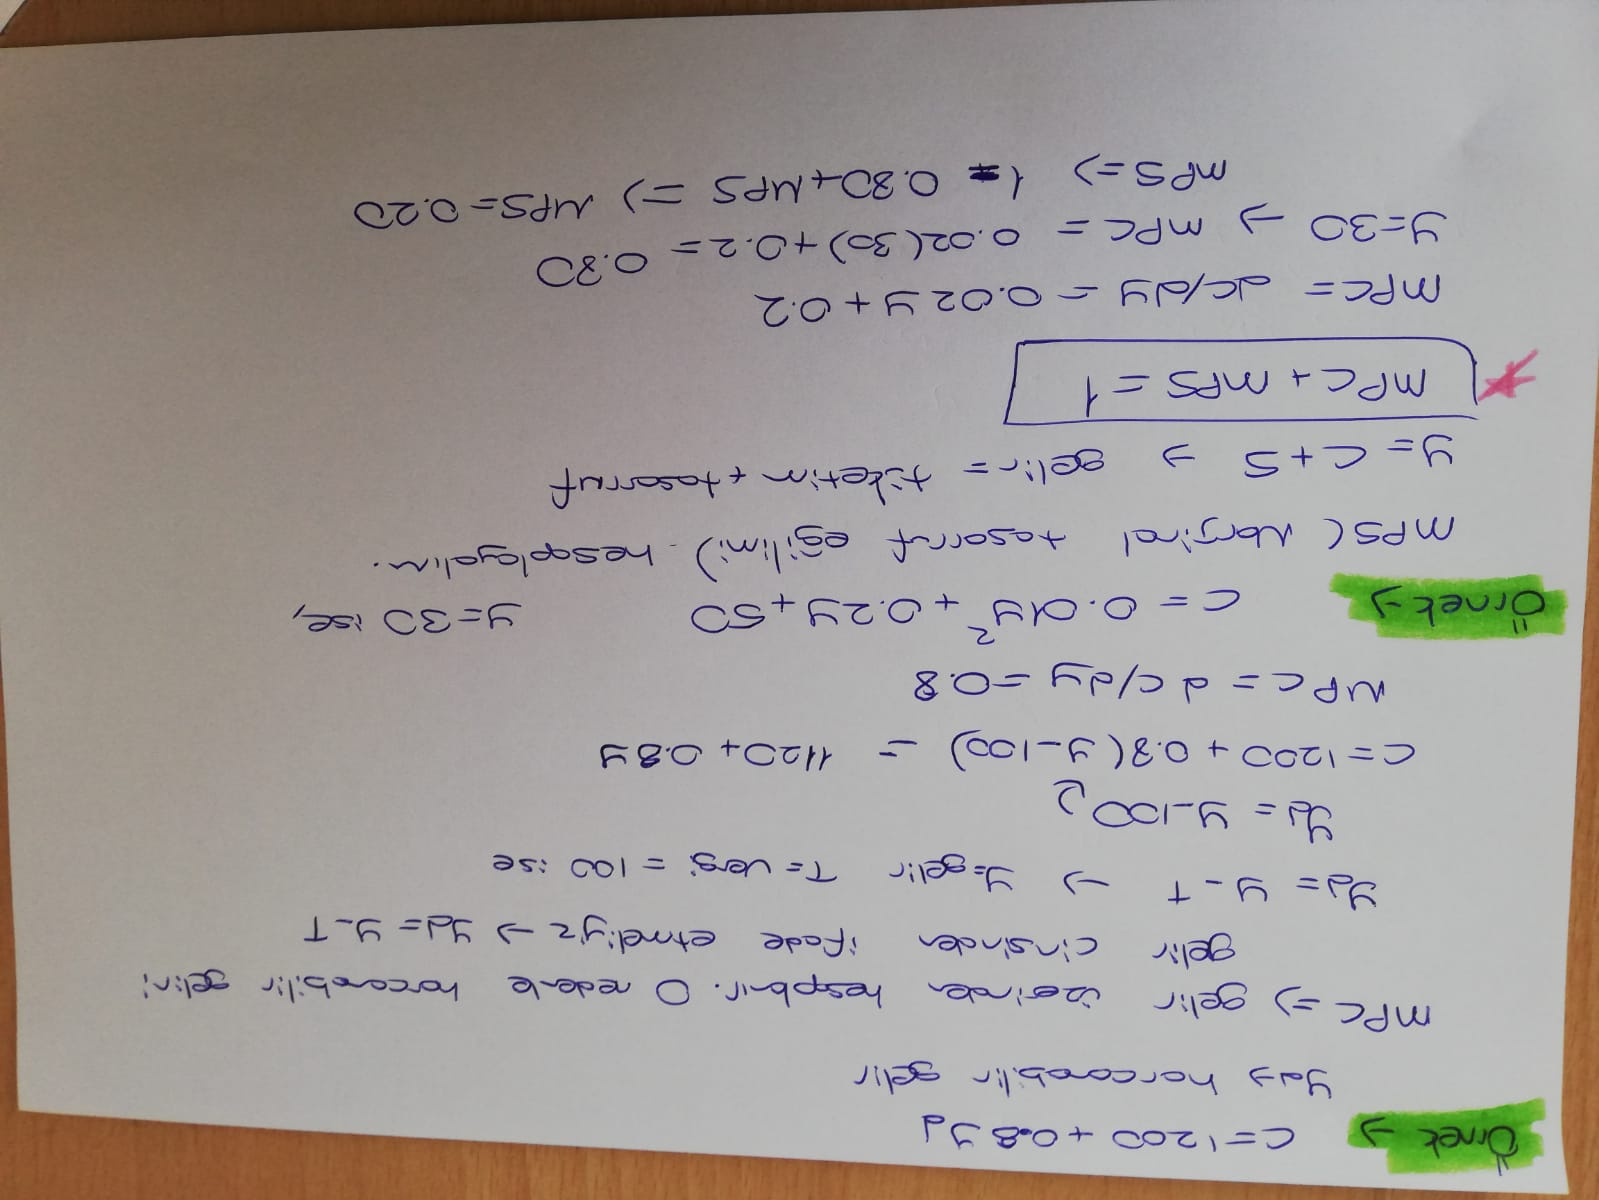 Örnek → C=1200+0.8yd
yd→ harcanabilir gelir
MPC => gelir üzerinden hesaplanır. O nedenle harcanabilir geliri
gelir cinsinden ifade etmeliyiz → yd= y-T
yd= y-T → y=gelir T= vergi =100 ise
yd= y-100
C=1200+0.8(y-100) = 1120+0.8y
MPC= dc/dy =0.8
Örnek → C= 0.01y²+0.2y+50 y=30 ise,
MPS( Marjinal tasarruf eğilimi) hesaplayalım.
y= C+S → gelir= tüketim + tasarruf
MPC+MPS=1
MPC= dc/dy = 0.02y+0.2
y=30 → MPC= 0.02(30)+0.2= 0.80
MPS=> 1= 0.80+MPS => MPS=0.20